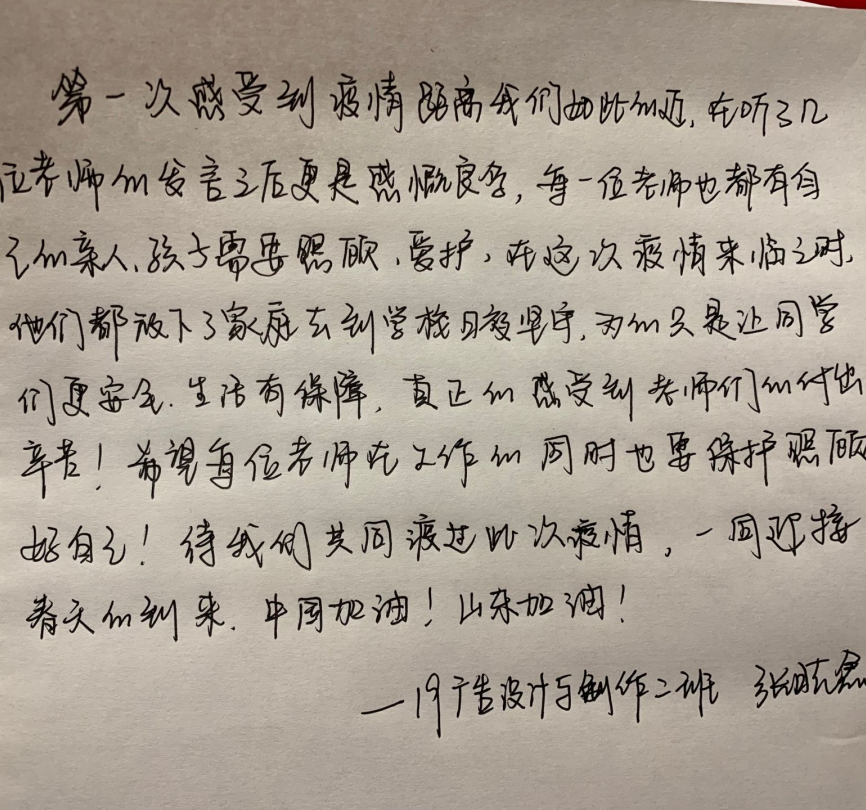 第一次感受到疫情距离我们如此的近,在听了几
位老师的发言之后更是感慨良多,每一位老师也都有自
己的亲人、孩子需要照顾、爱护,在这次疫情来临之时,
他们都放下了家庭去到学校日夜坚守,为的只是让同学
们更安全.生活有保障,真正的感受到老师们的付出
辛苦!希望每位老师在工作的同时也要保护照顾
好自己!待我们共同渡过此次疫情,一同迎接
春天的到来.中国加油!山东加油!
—19广告设计与制作二班 张晓